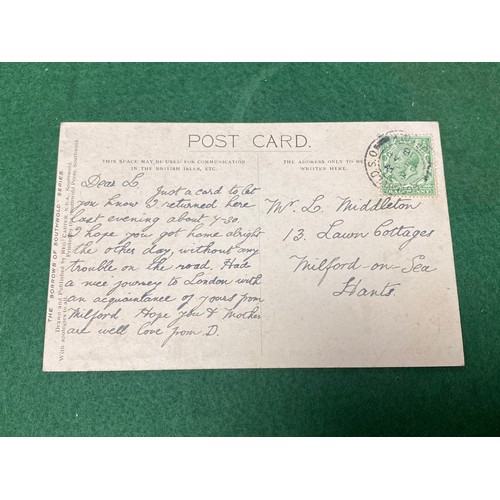 POST CARD.
THIS SPACE MAY BE USED FOR COMMUNICATION
IN THE BRITISH ISLES, ETC.
THE ADDRESS ONLY TO BE
WRITTEN HERE.
Dear L.
Just a card to let
you know I returned here
last evening about 7-30.
I hope you got home alright
the other day, without any
trouble on the road. Had
a nice journey to London with
an acquaintance of yours from
Milford Hope you & Mother
are well love from D.
Mr. L. Middleton
13. Lawn Cottages
Milford-on-Sea
Hants.
THE "BORROWS OF SOUTHWOLD" SERIES.
Drawn and Published by Reg. Carter,
With apologies to all